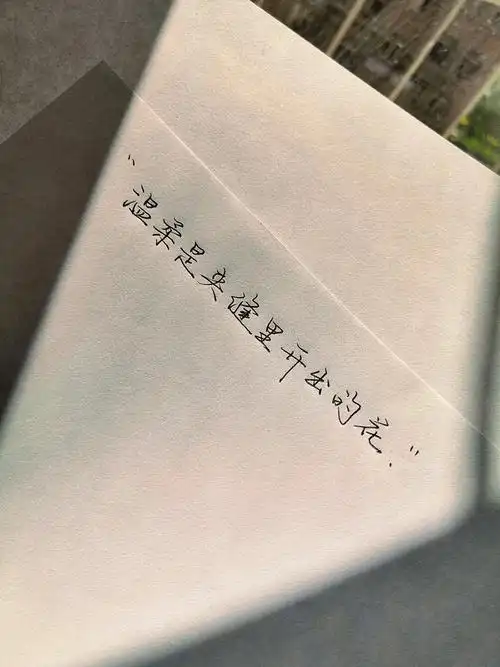 “温柔是夹缝里开出的花.”